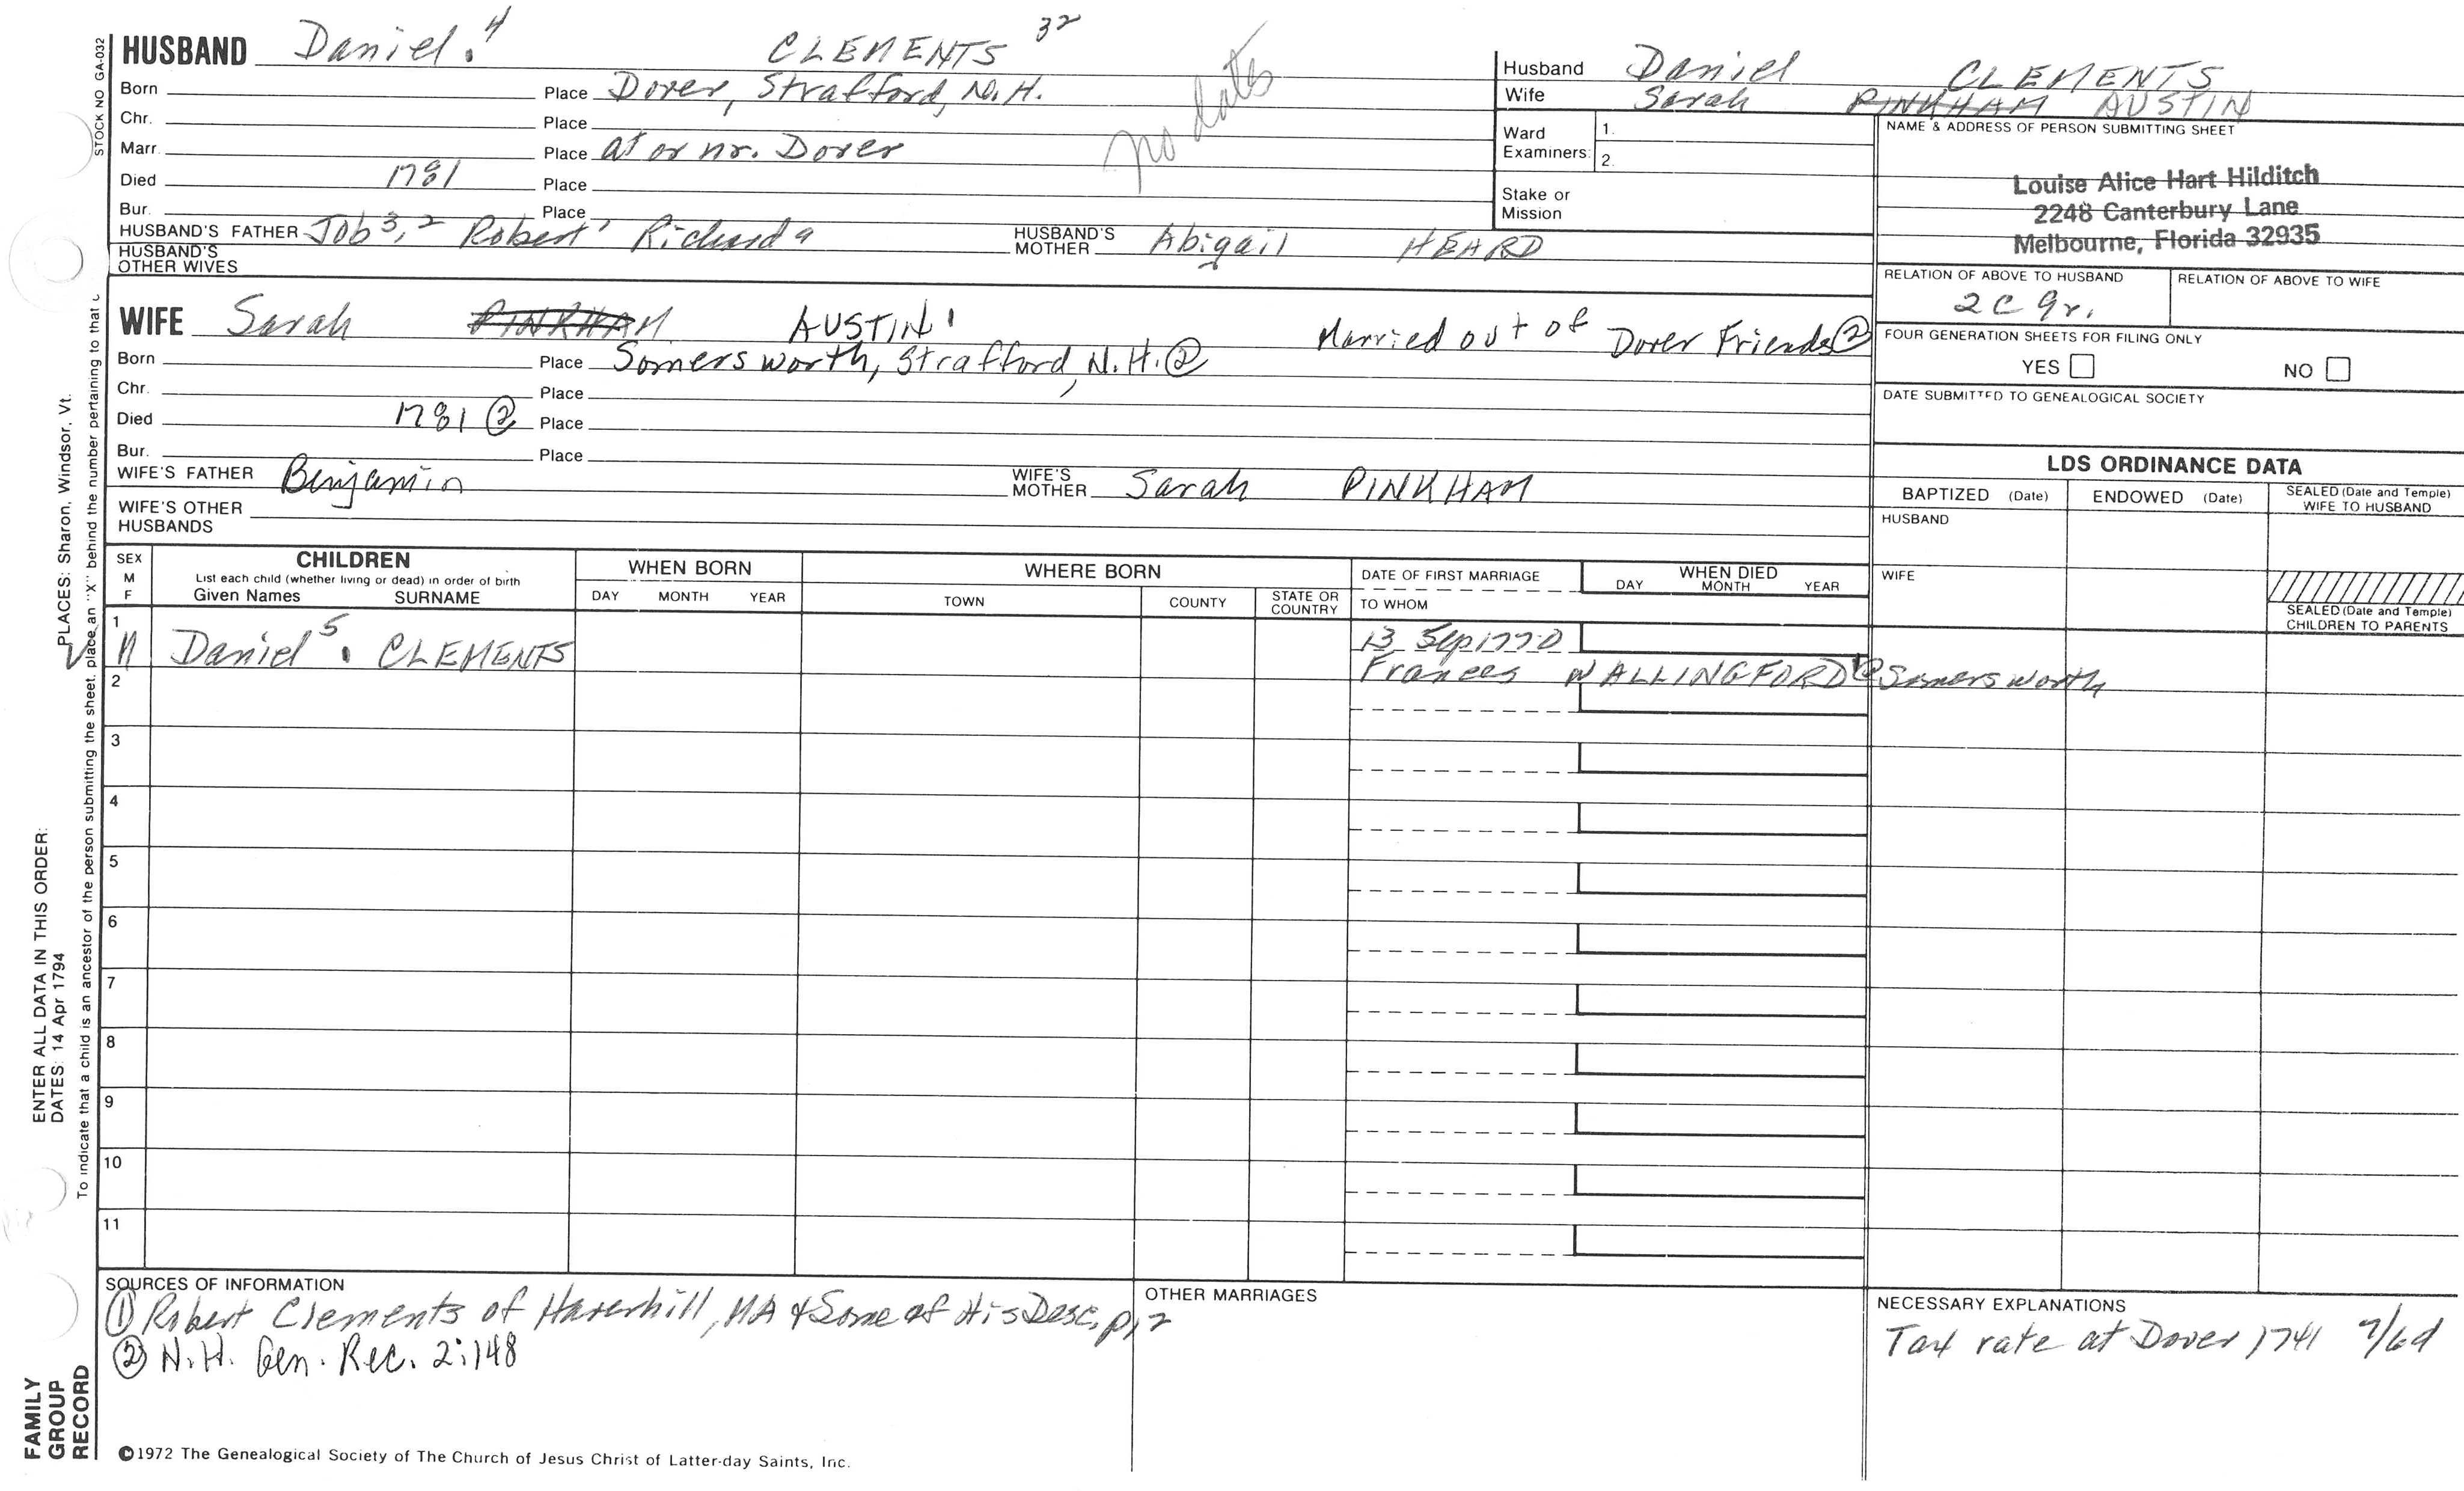 STOCK NO GA-032
HUSBAND Daniel.4 CLEMENTS 32
Born Place Dover, Strafford, N.H.
no dates
Chr. Place
Marr. Place at or nr. Dover
Died 1781 Place
Bur. Place
HUSBAND'S FATHER Job3,2 Robert1 Richard a HUSBAND'S MOTHER Abigail HEARD
HUSBAND'S OTHER WIVES
WIFE Sarah PINKHAM AUSTIN1 Married out of Dover Friends②
Born Place Somersworth, Strafford, N.H.②
Chr. Place
Died 1781② Place
Bur. Place
WIFE'S FATHER Benjamin WIFE'S MOTHER Sarah PINKHAM
WIFE'S OTHER HUSBANDS
Husband Daniel CLEMENTS
Wife Sarah PINKHAM AUSTIN
Ward Examiners: 1.
2.
Stake or Mission
NAME & ADDRESS OF PERSON SUBMITTING SHEET
Louise Alice Hart Hilditch
2248 Canterbury Lane
Melbourne, Florida 32935
RELATION OF ABOVE TO HUSBAND RELATION OF ABOVE TO WIFE
2C 9r.
FOUR GENERATION SHEETS FOR FILING ONLY
YES NO
DATE SUBMITTED TO GENEALOGICAL SOCIETY
LDS ORDINANCE DATA
BAPTIZED (Date) ENDOWED (Date) SEALED (Date and Temple) WIFE TO HUSBAND
HUSBAND
WIFE
SEALED (Date and Temple) CHILDREN TO PARENTS
SEX M F CHILDREN WHEN BORN WHERE BORN DATE OF FIRST MARRIAGE WHEN DIED
List each child (whether living or dead) in order of birth
Given Names SURNAME DAY MONTH YEAR TOWN COUNTY STATE OR COUNTRY TO WHOM DAY MONTH YEAR
1 M Daniel5. CLEMENTS 13 Sep 1770
Frances WALLINGFORD Somersworth
2
3
4
5
6
7
8
9
10
11
SOURCES OF INFORMATION
① Robert Clements of Haverhill, MA & Some of His Desc, p,2
② N.H. Gen. Rec. 2:148
OTHER MARRIAGES
NECESSARY EXPLANATIONS
Tax rate at Dover 1741 7/6d
©1972 The Genealogical Society of The Church of Jesus Christ of Latter-day Saints, Inc.
FAMILY GROUP RECORD
ENTER ALL DATA IN THIS ORDER:
DATES: 14 Apr 1794 PLACES: Sharon, Windsor, Vt.
To indicate that a child is an ancestor of the person submitting the sheet, place an "X" behind the number pertaining to that c